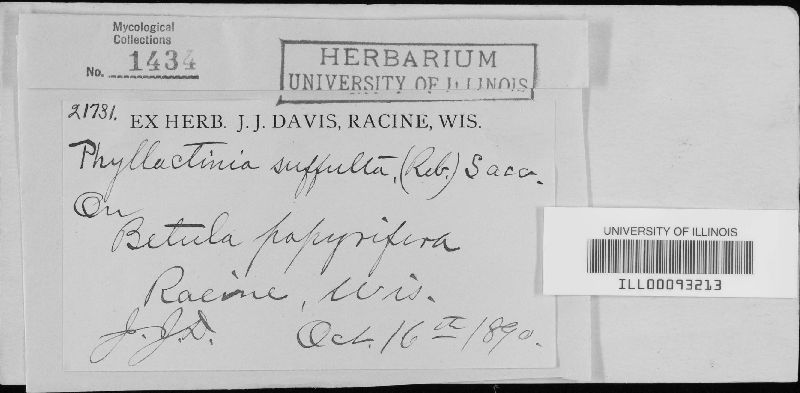 Mycological
Collections
No. 1434
HERBARIUM
UNIVERSITY OF ILLINOIS
21731.
EX HERB. J. J. DAVIS, RACINE, WIS.
Phyllactinia suffulta, (Reb.) Sacc.
On
Betula papyrifera
Racine, Wis.
J. J. D. Oct. 16th 1890.
UNIVERSITY OF ILLINOIS
ILL00093213